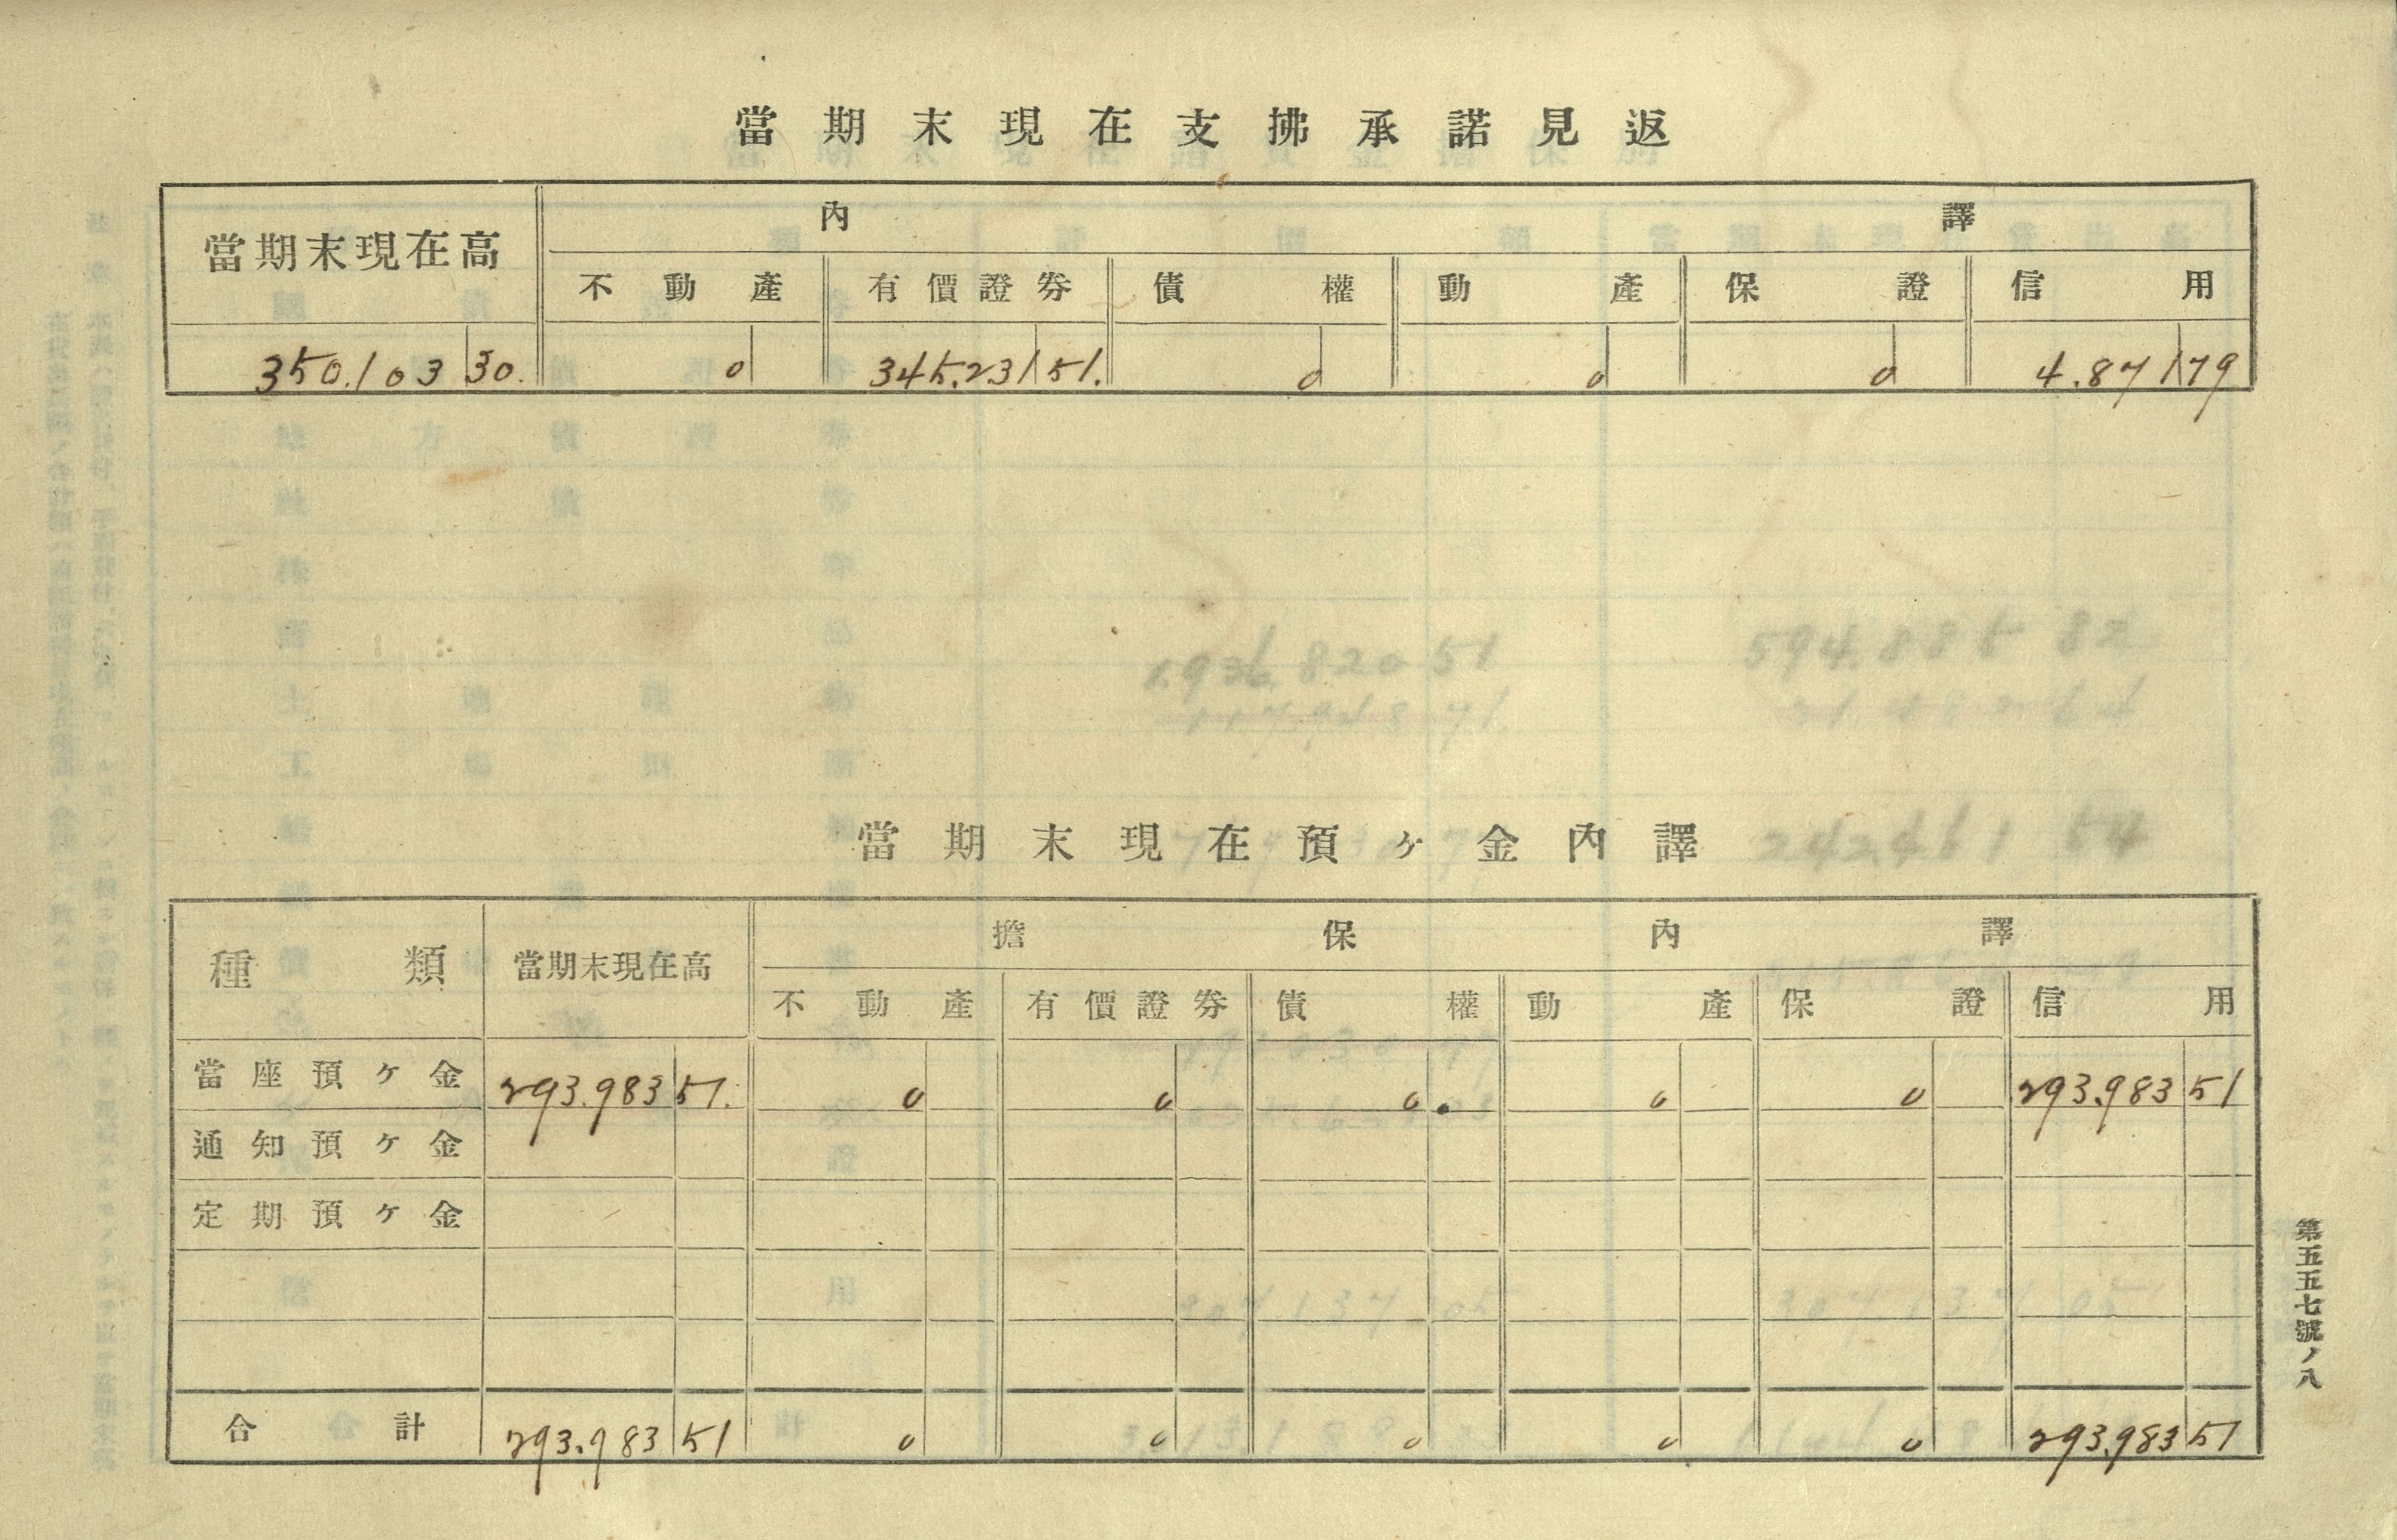 當期末現在支拂承諾見返
當期末現在高 內譯
不動產 有價證券 債權 動產 保證 信用
350.103 30. 0 345.231 51. 0 0 0 4.871 79
當期末現在預ヶ金內譯
種類 當期末現在高 擔保內譯
不動產 有價證券 債權 動產 保證 信用
當座預ヶ金 293.983 51. 0 0 0 0 0 293.983 51
通知預ヶ金
定期預ヶ金
合計 293.983 51 0 0 0 0 0 293.983 51
第五五七號ノ八